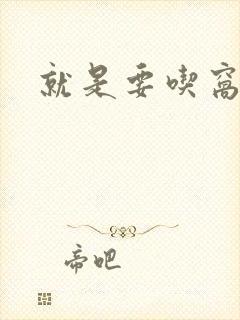 就是要喫窩
帝吧